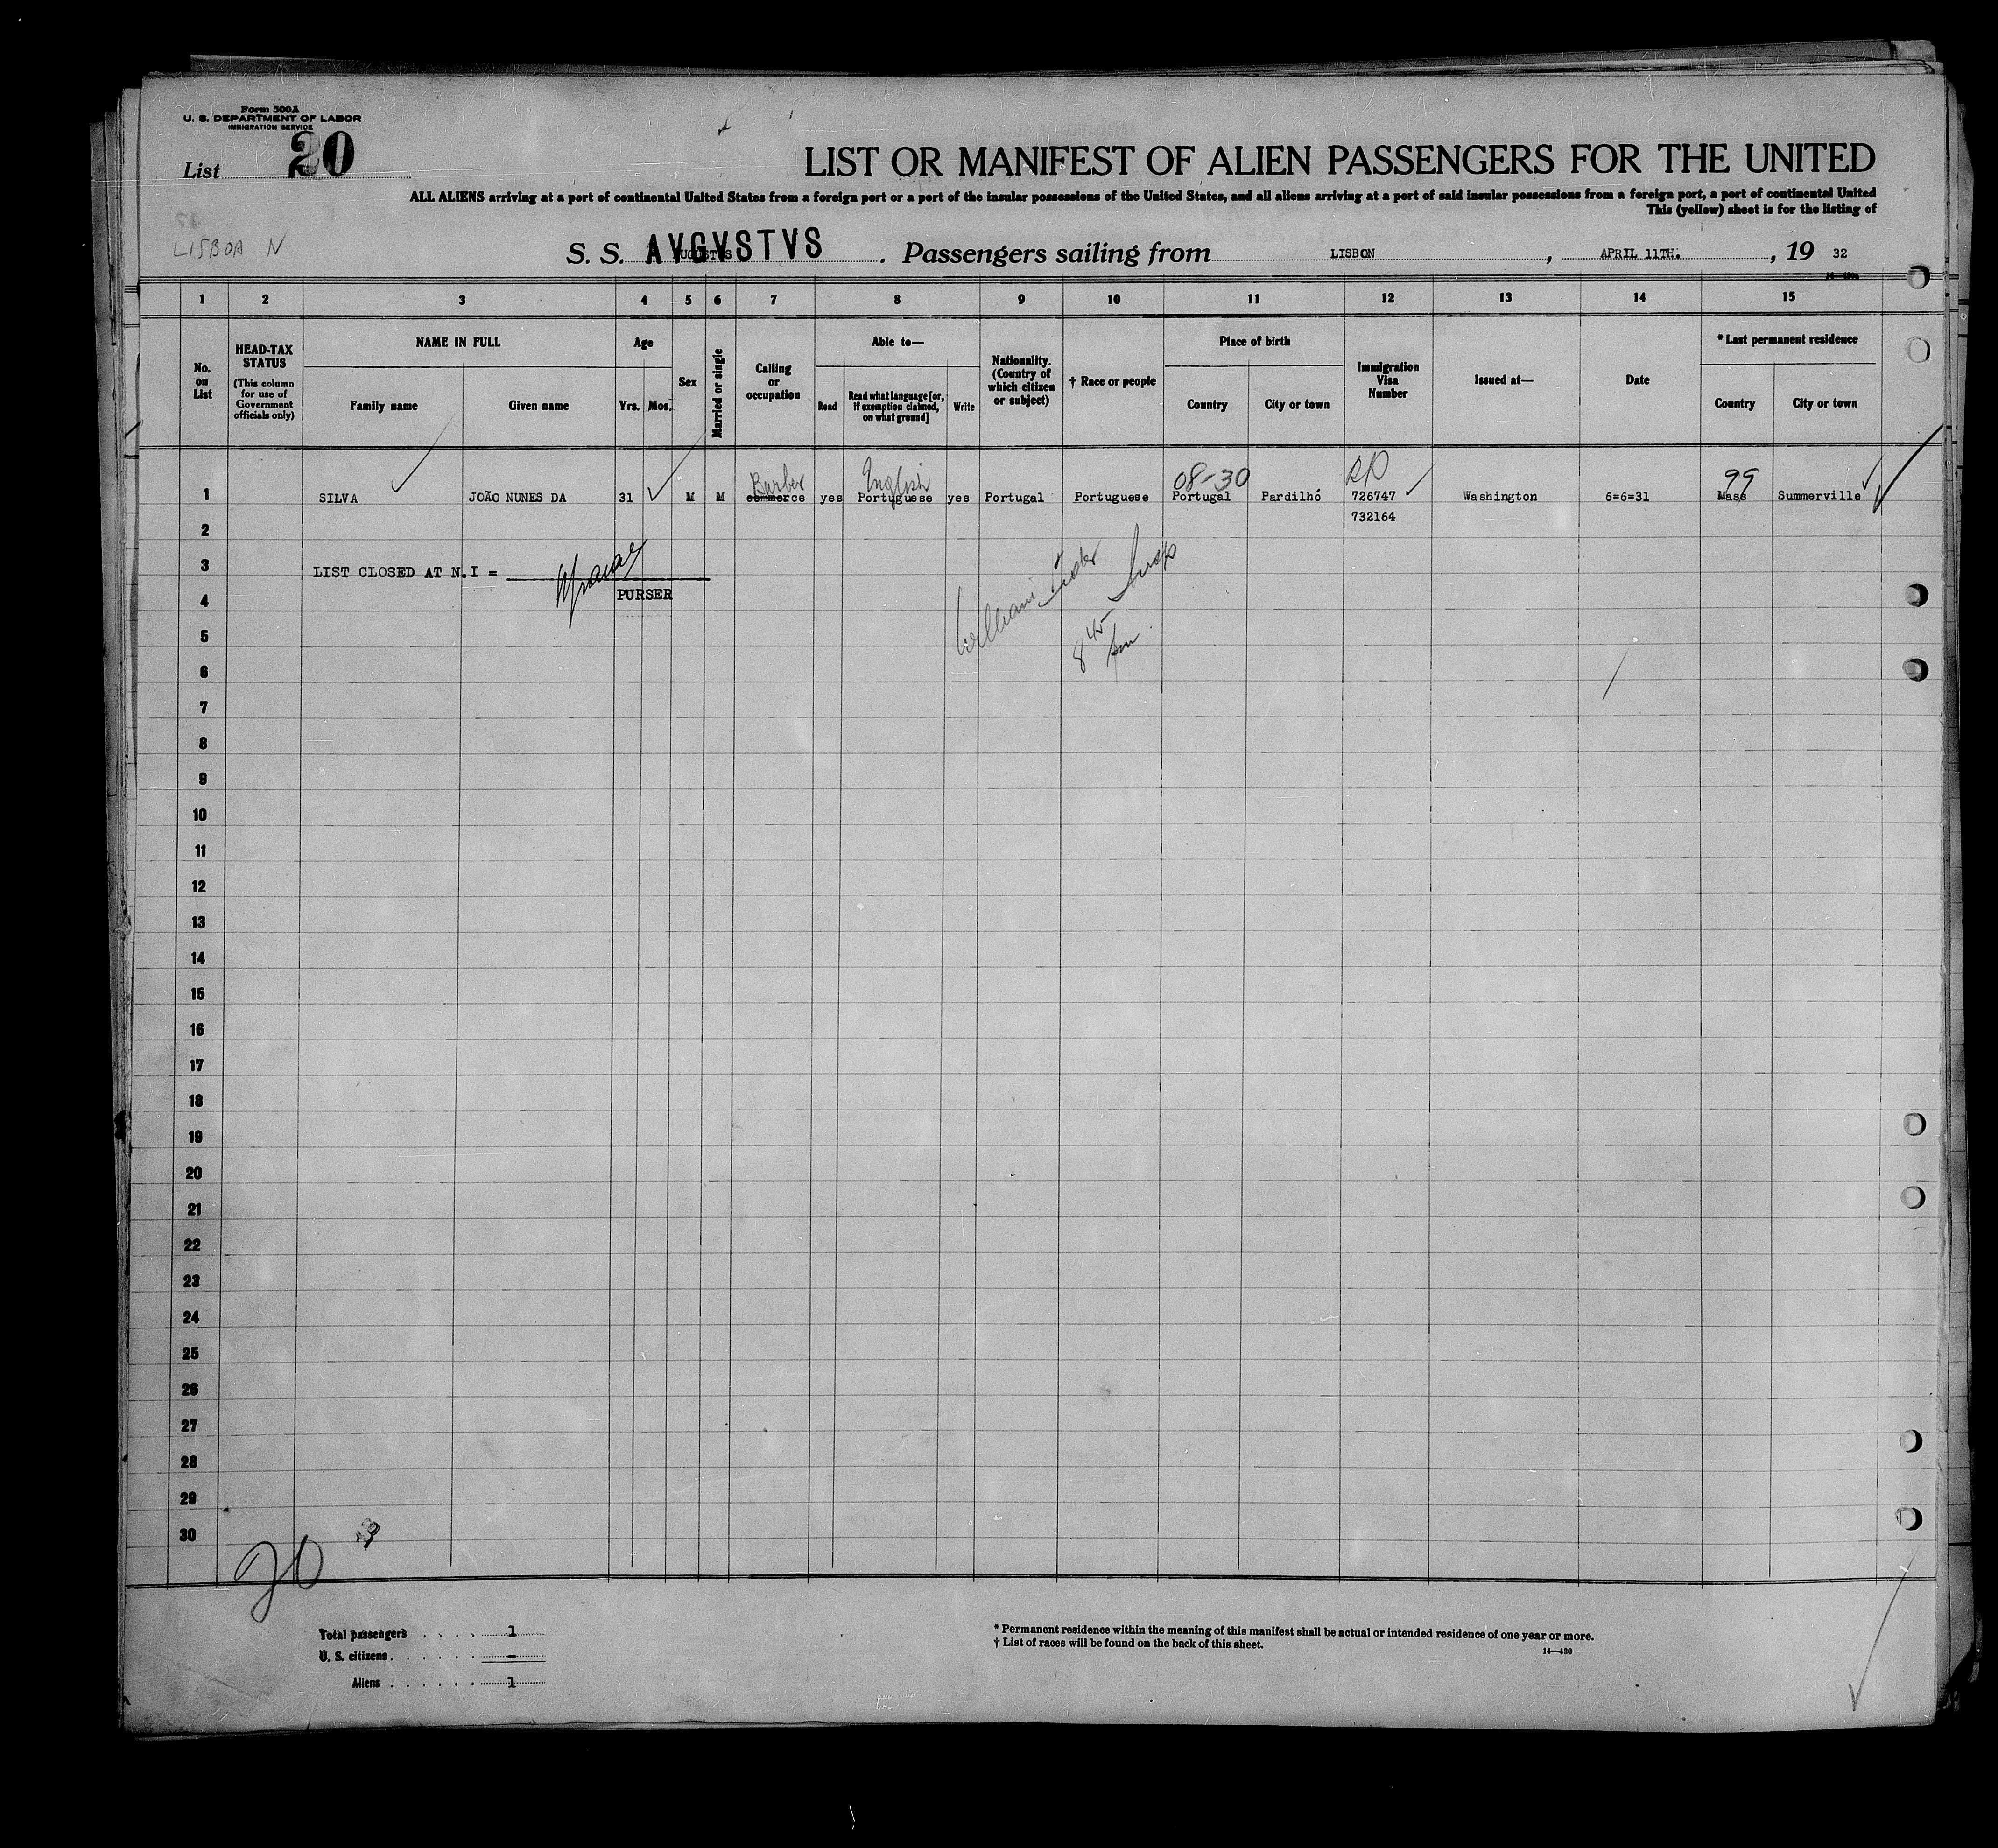 Form 500A
U. S. DEPARTMENT OF LABOR
IMMIGRATION SERVICE
List 20
LIST OR MANIFEST OF ALIEN PASSENGERS FOR THE UNITED
ALL ALIENS arriving at a port of continental United States from a foreign port or a port of the insular possessions of the United States, and all aliens arriving at a port of said insular possessions from a foreign port, a port of continental United
This (yellow) sheet is for the listing of
LISBOA N
S. S. AVGVSTVS . Passengers sailing from LISBON , APRIL 11TH. , 19 32
1 2 3 4 5 6 7 8 9 10 11 12 13 14 15
No. on List
HEAD-TAX STATUS
(This column for use of Government officials only)
NAME IN FULL
Family name Given name
Age
Yrs. Mos.
Sex
Married or single
Calling or occupation
Able to—
Read
Read what language [or, if exemption claimed, on what ground]
Write
Nationality. (Country of which citizen or subject)
† Race or people
Place of birth
Country City or town
Immigration Visa Number
Issued at—
Date
* Last permanent residence
Country City or town
Barber English 08-30 99
1 SILVA JOÃO NUNES DA 31 M M commerce yes Portuguese yes Portugal Portuguese Portugal Pardilhó 726747 Washington 6=6=31 Mass Summerville
732164
2
3 LIST CLOSED AT N.I =
4 PURSER
William
8 45 am
5
6
7
8
9
10
11
12
13
14
15
16
17
18
19
20
21
22
23
24
25
26
27
28
29
30
20
Total passengers . . . . 1
U. S. citizens . . . . . . -
Aliens . . . . . . 1
* Permanent residence within the meaning of this manifest shall be actual or intended residence of one year or more.
† List of races will be found on the back of this sheet.
14—430